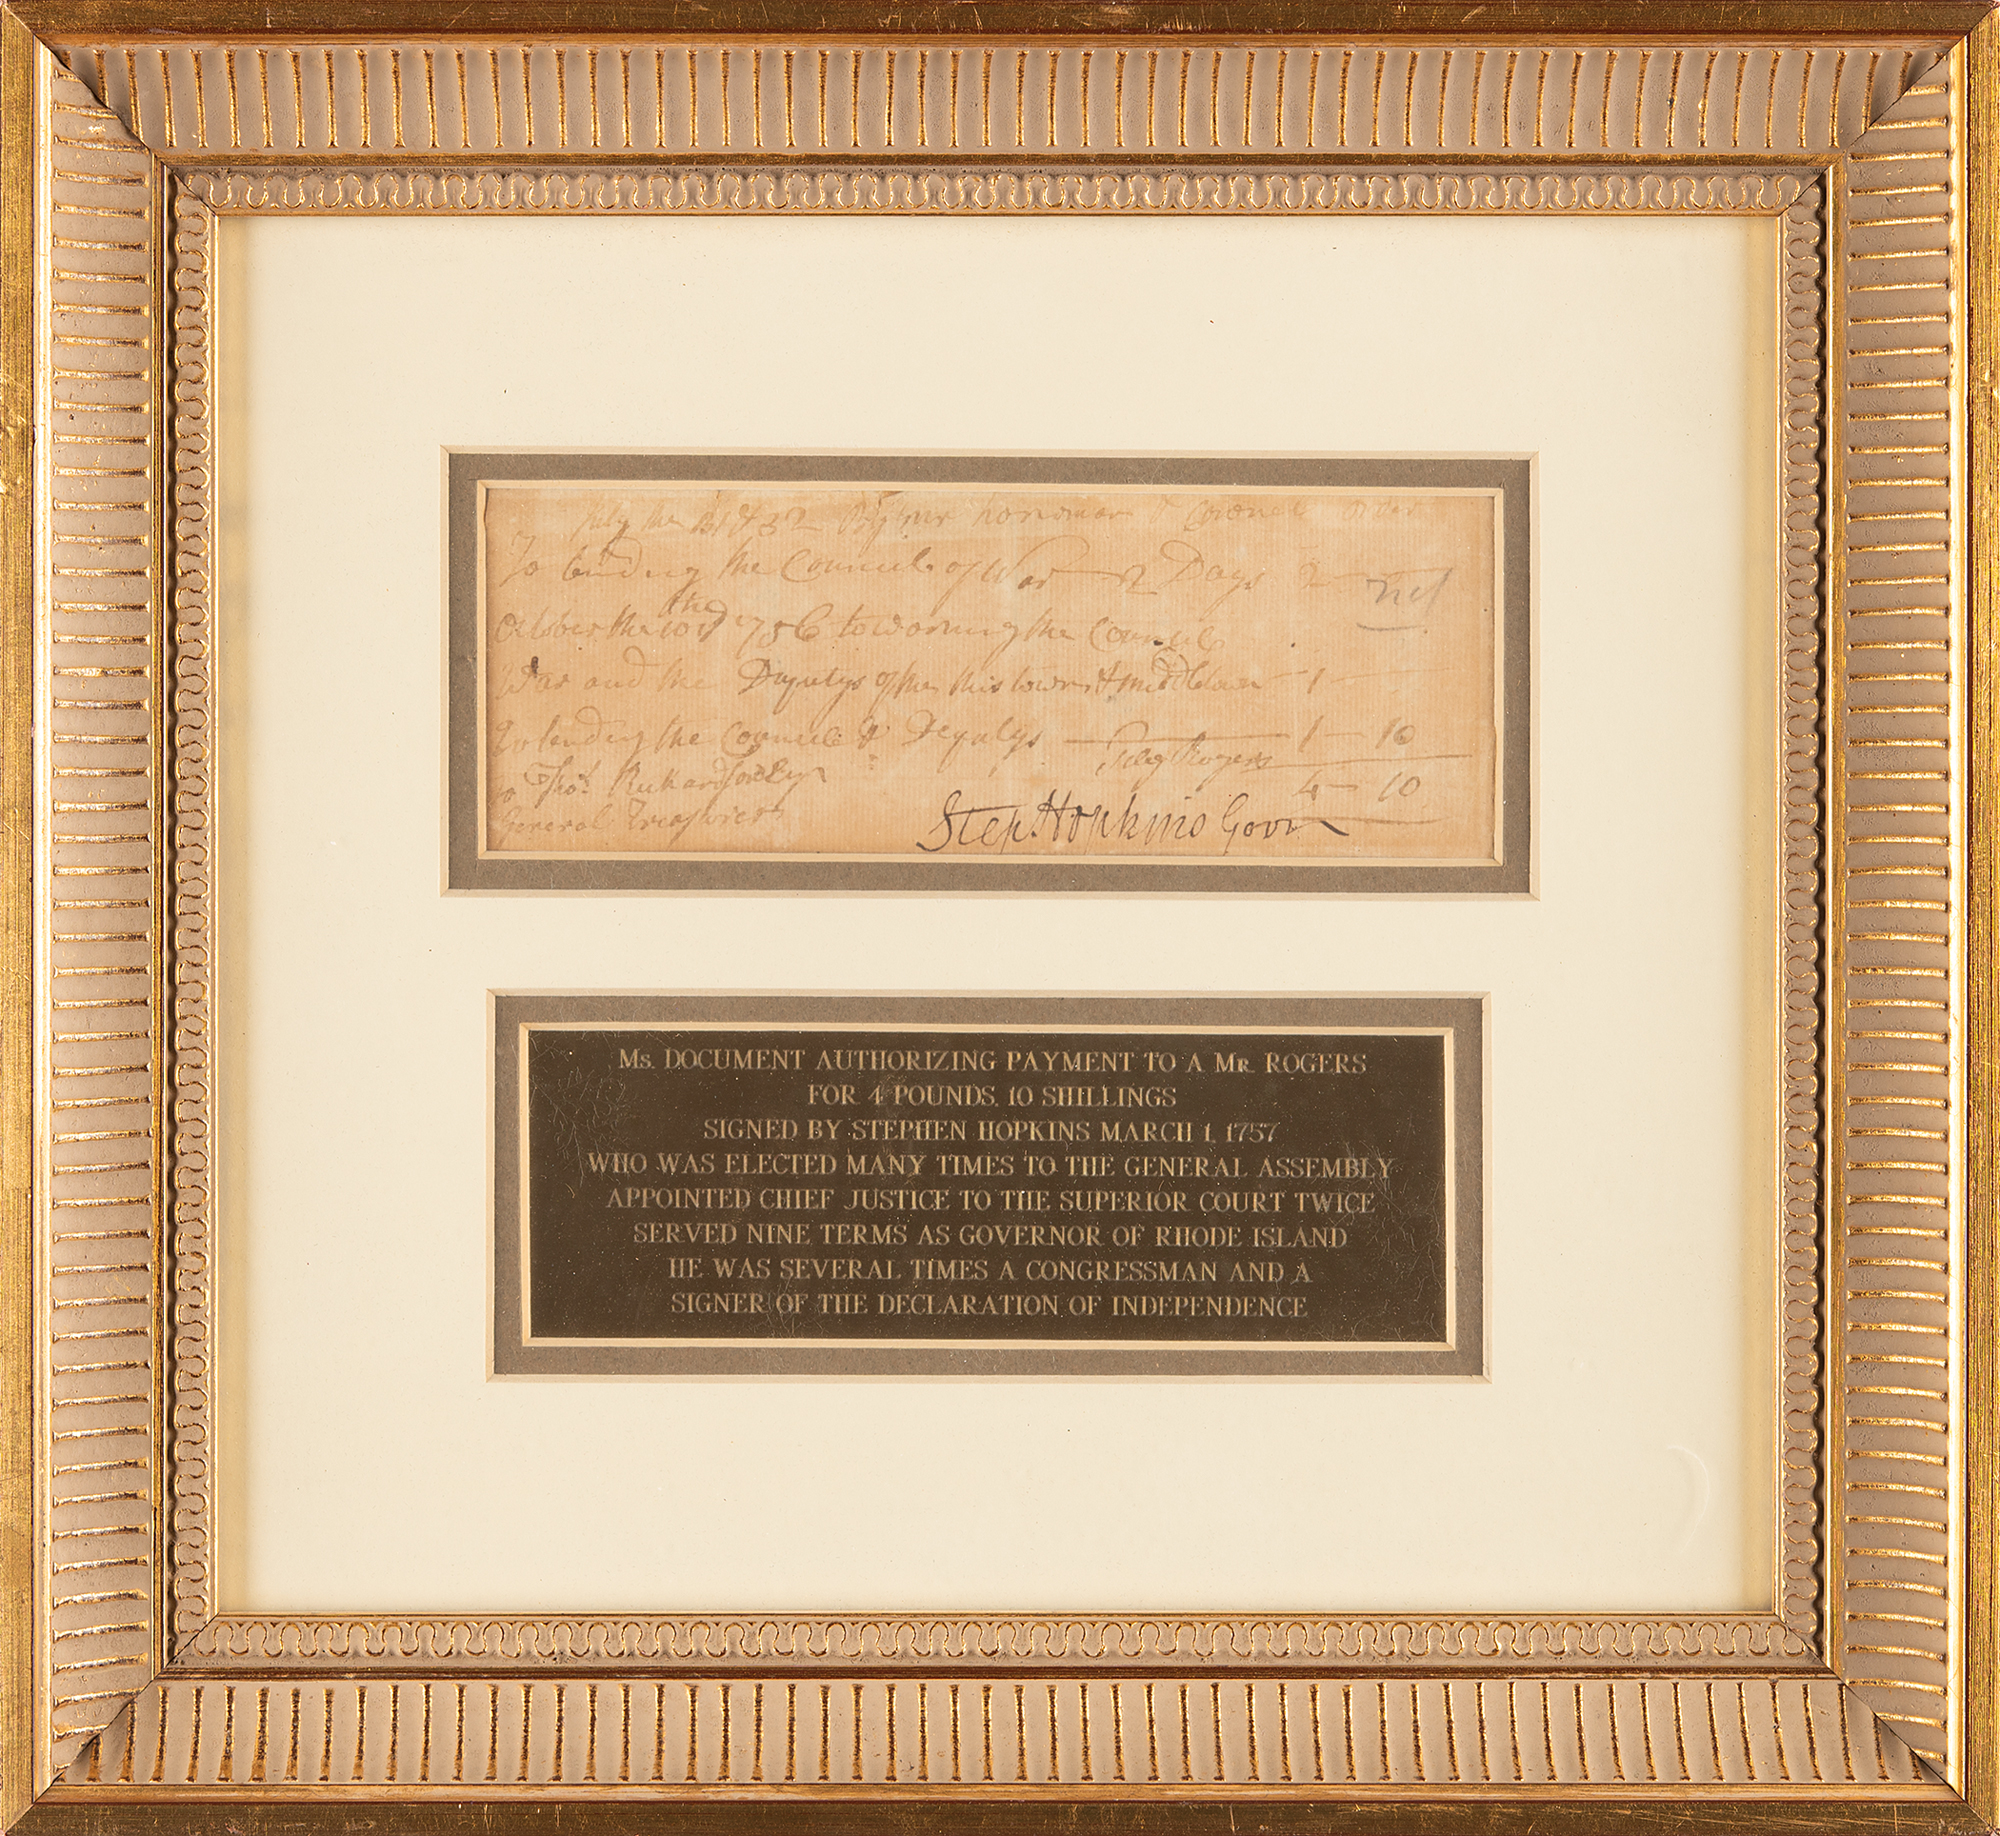 July the
To tending the Council of War — 2 Days 2 —
October the 10th 1756 to warning the Council
War and the Deputys of the this town & middletown — 1 —
To tending the Council & Deputys — 1 — 10
Peleg Rogers
4 — 10
to Thos Richardson Esqr
General Treasurer
Step Hopkins Govr
Ms. DOCUMENT AUTHORIZING PAYMENT TO A Mr. ROGERS
FOR 4 POUNDS, 10 SHILLINGS
SIGNED BY STEPHEN HOPKINS MARCH 1, 1757
WHO WAS ELECTED MANY TIMES TO THE GENERAL ASSEMBLY
APPOINTED CHIEF JUSTICE TO THE SUPERIOR COURT TWICE
SERVED NINE TERMS AS GOVERNOR OF RHODE ISLAND
HE WAS SEVERAL TIMES A CONGRESSMAN AND A
SIGNER OF THE DECLARATION OF INDEPENDENCE